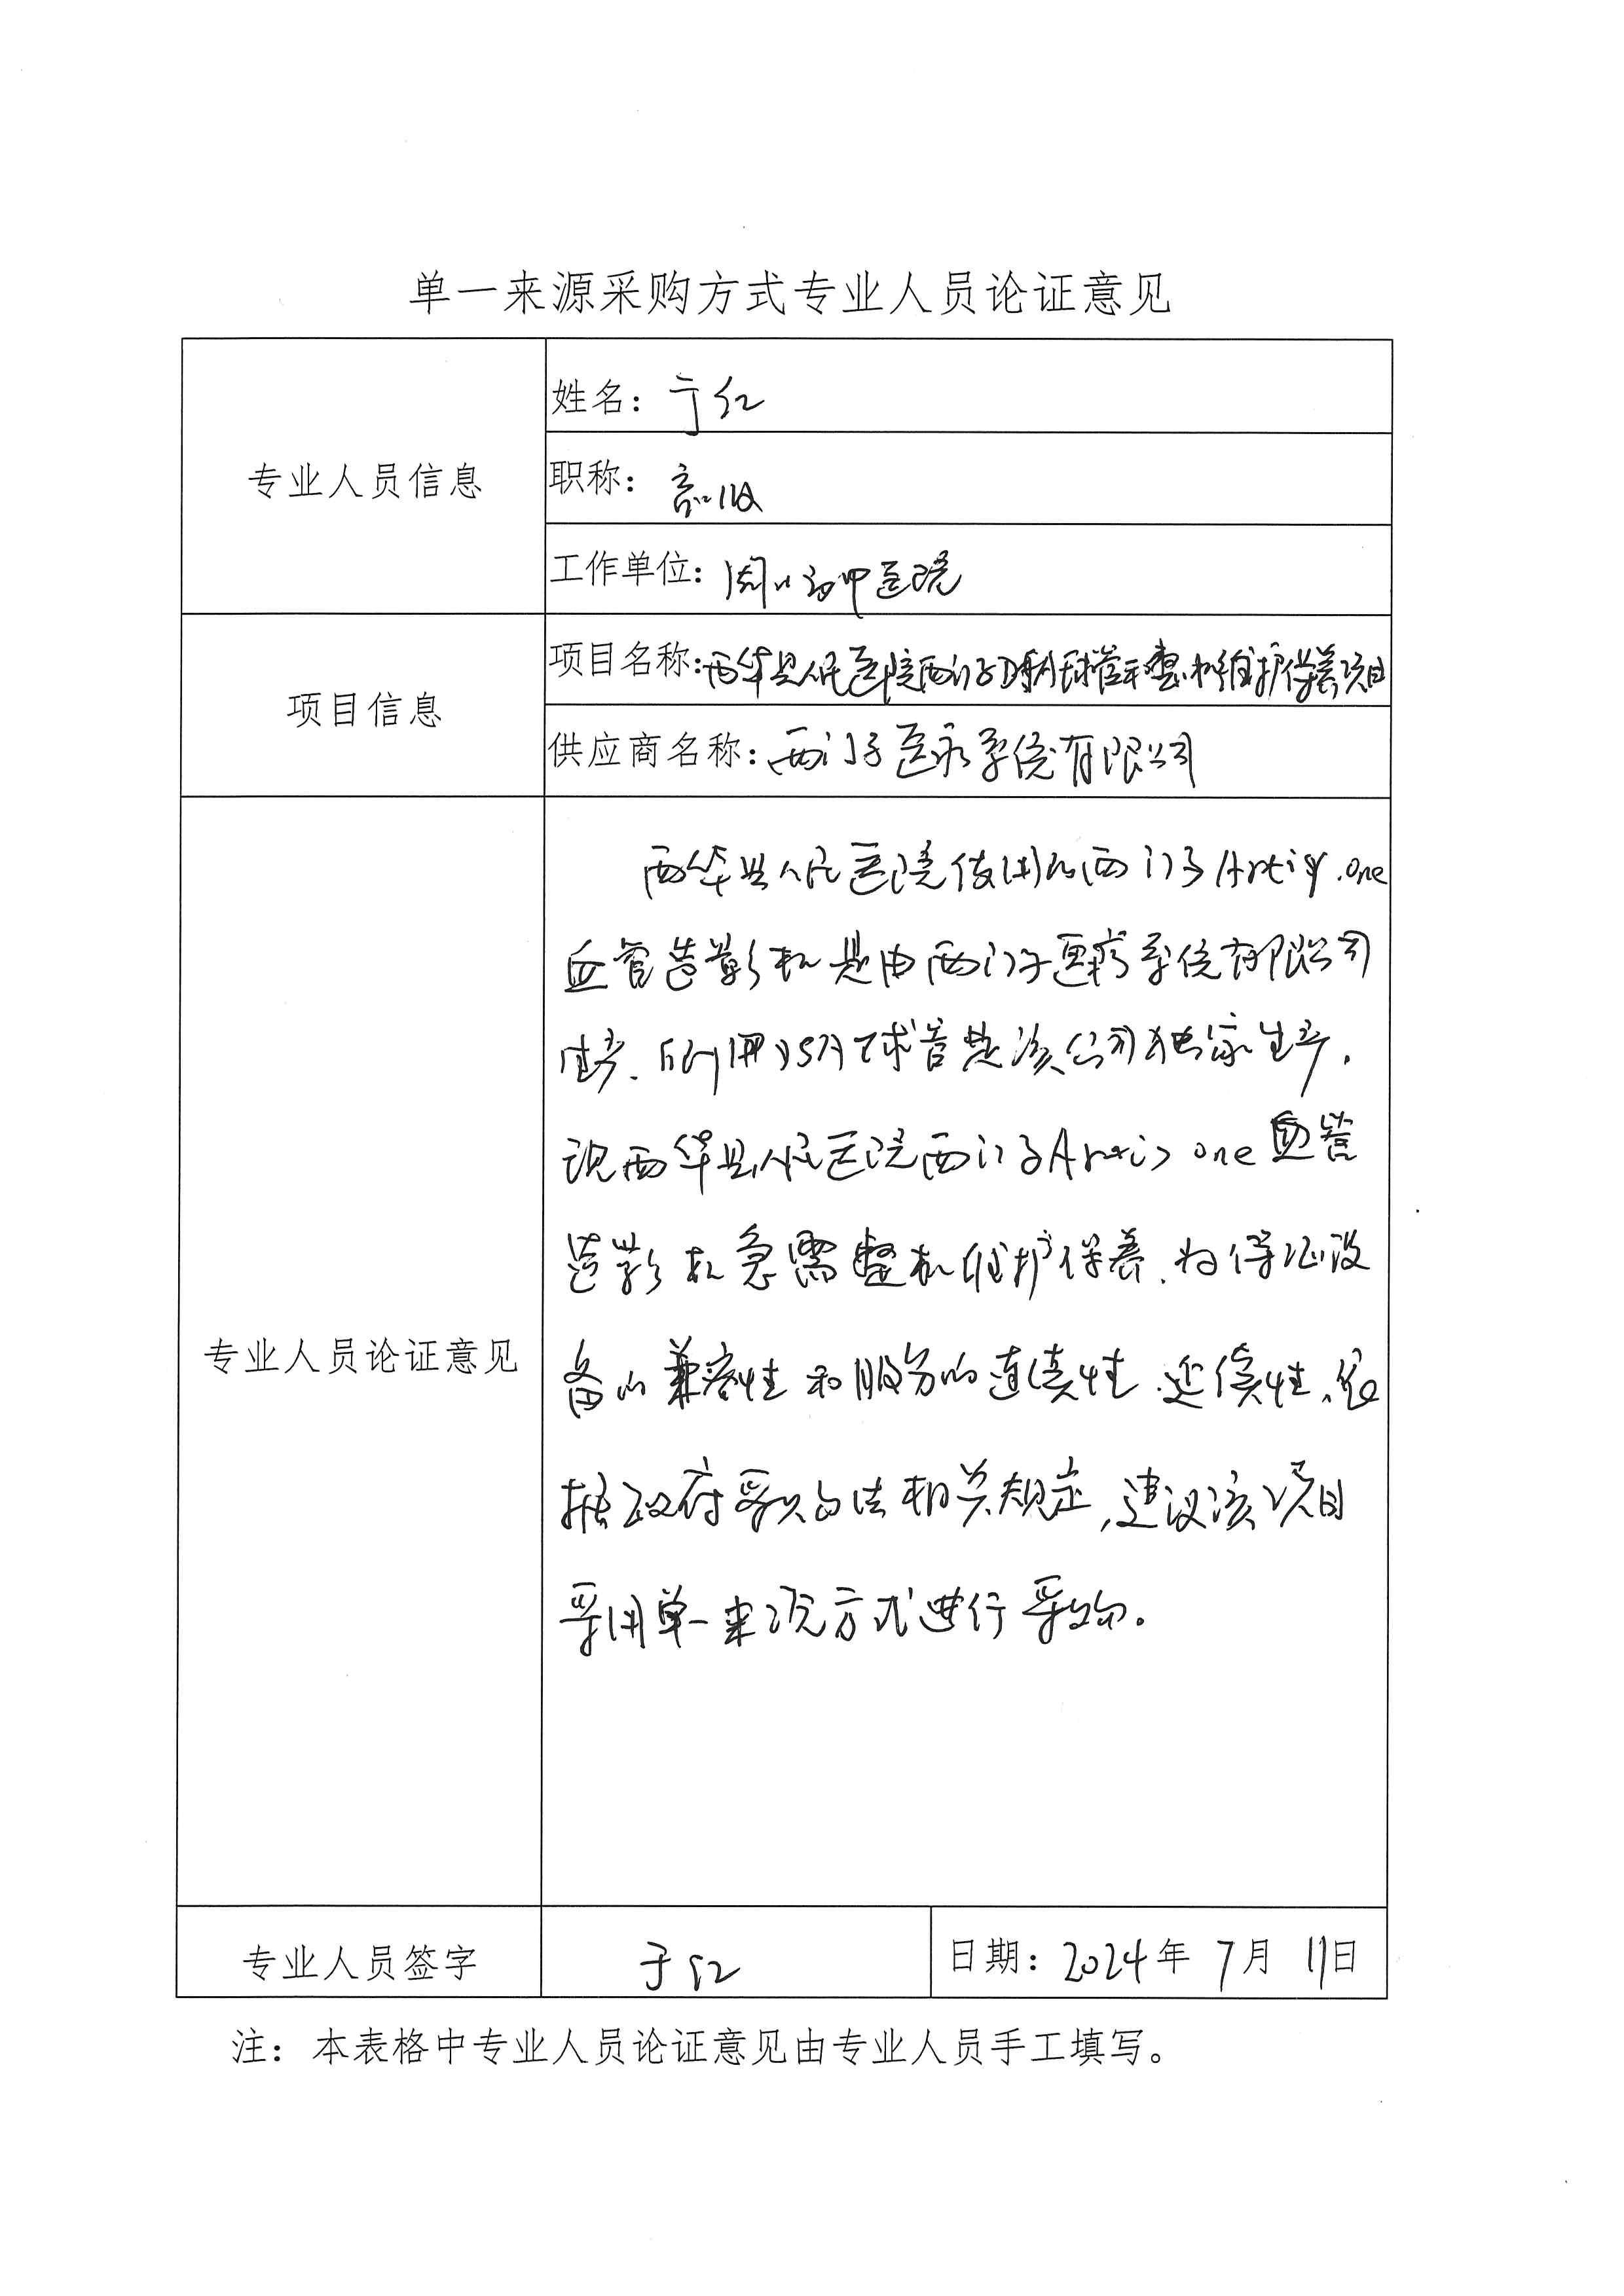 单一来源采购方式专业人员论证意见
专业人员信息
姓名：于红
职称：高级
工作单位：周口市中医院
项目信息
项目名称：西华县人民医院西门子DSA球管和整机维护保养项目
供应商名称：西门子医疗系统有限公司
专业人员论证意见
西华县人民医院使用的西门子Artis one
血管造影机是由西门子医疗系统有限公司
生产、所用DSA球管是该公司独家生产.
现西华县人民医院西门子Artis one血管
造影机急需整机维护保养.为保证设
备的兼容性和服务的连续性.延续性.依
据政府采购法相关规定,建议该项目
采用单一来源方式进行采购。
专业人员签字
于红
日期：2024年7月11日
注：本表格中专业人员论证意见由专业人员手工填写。